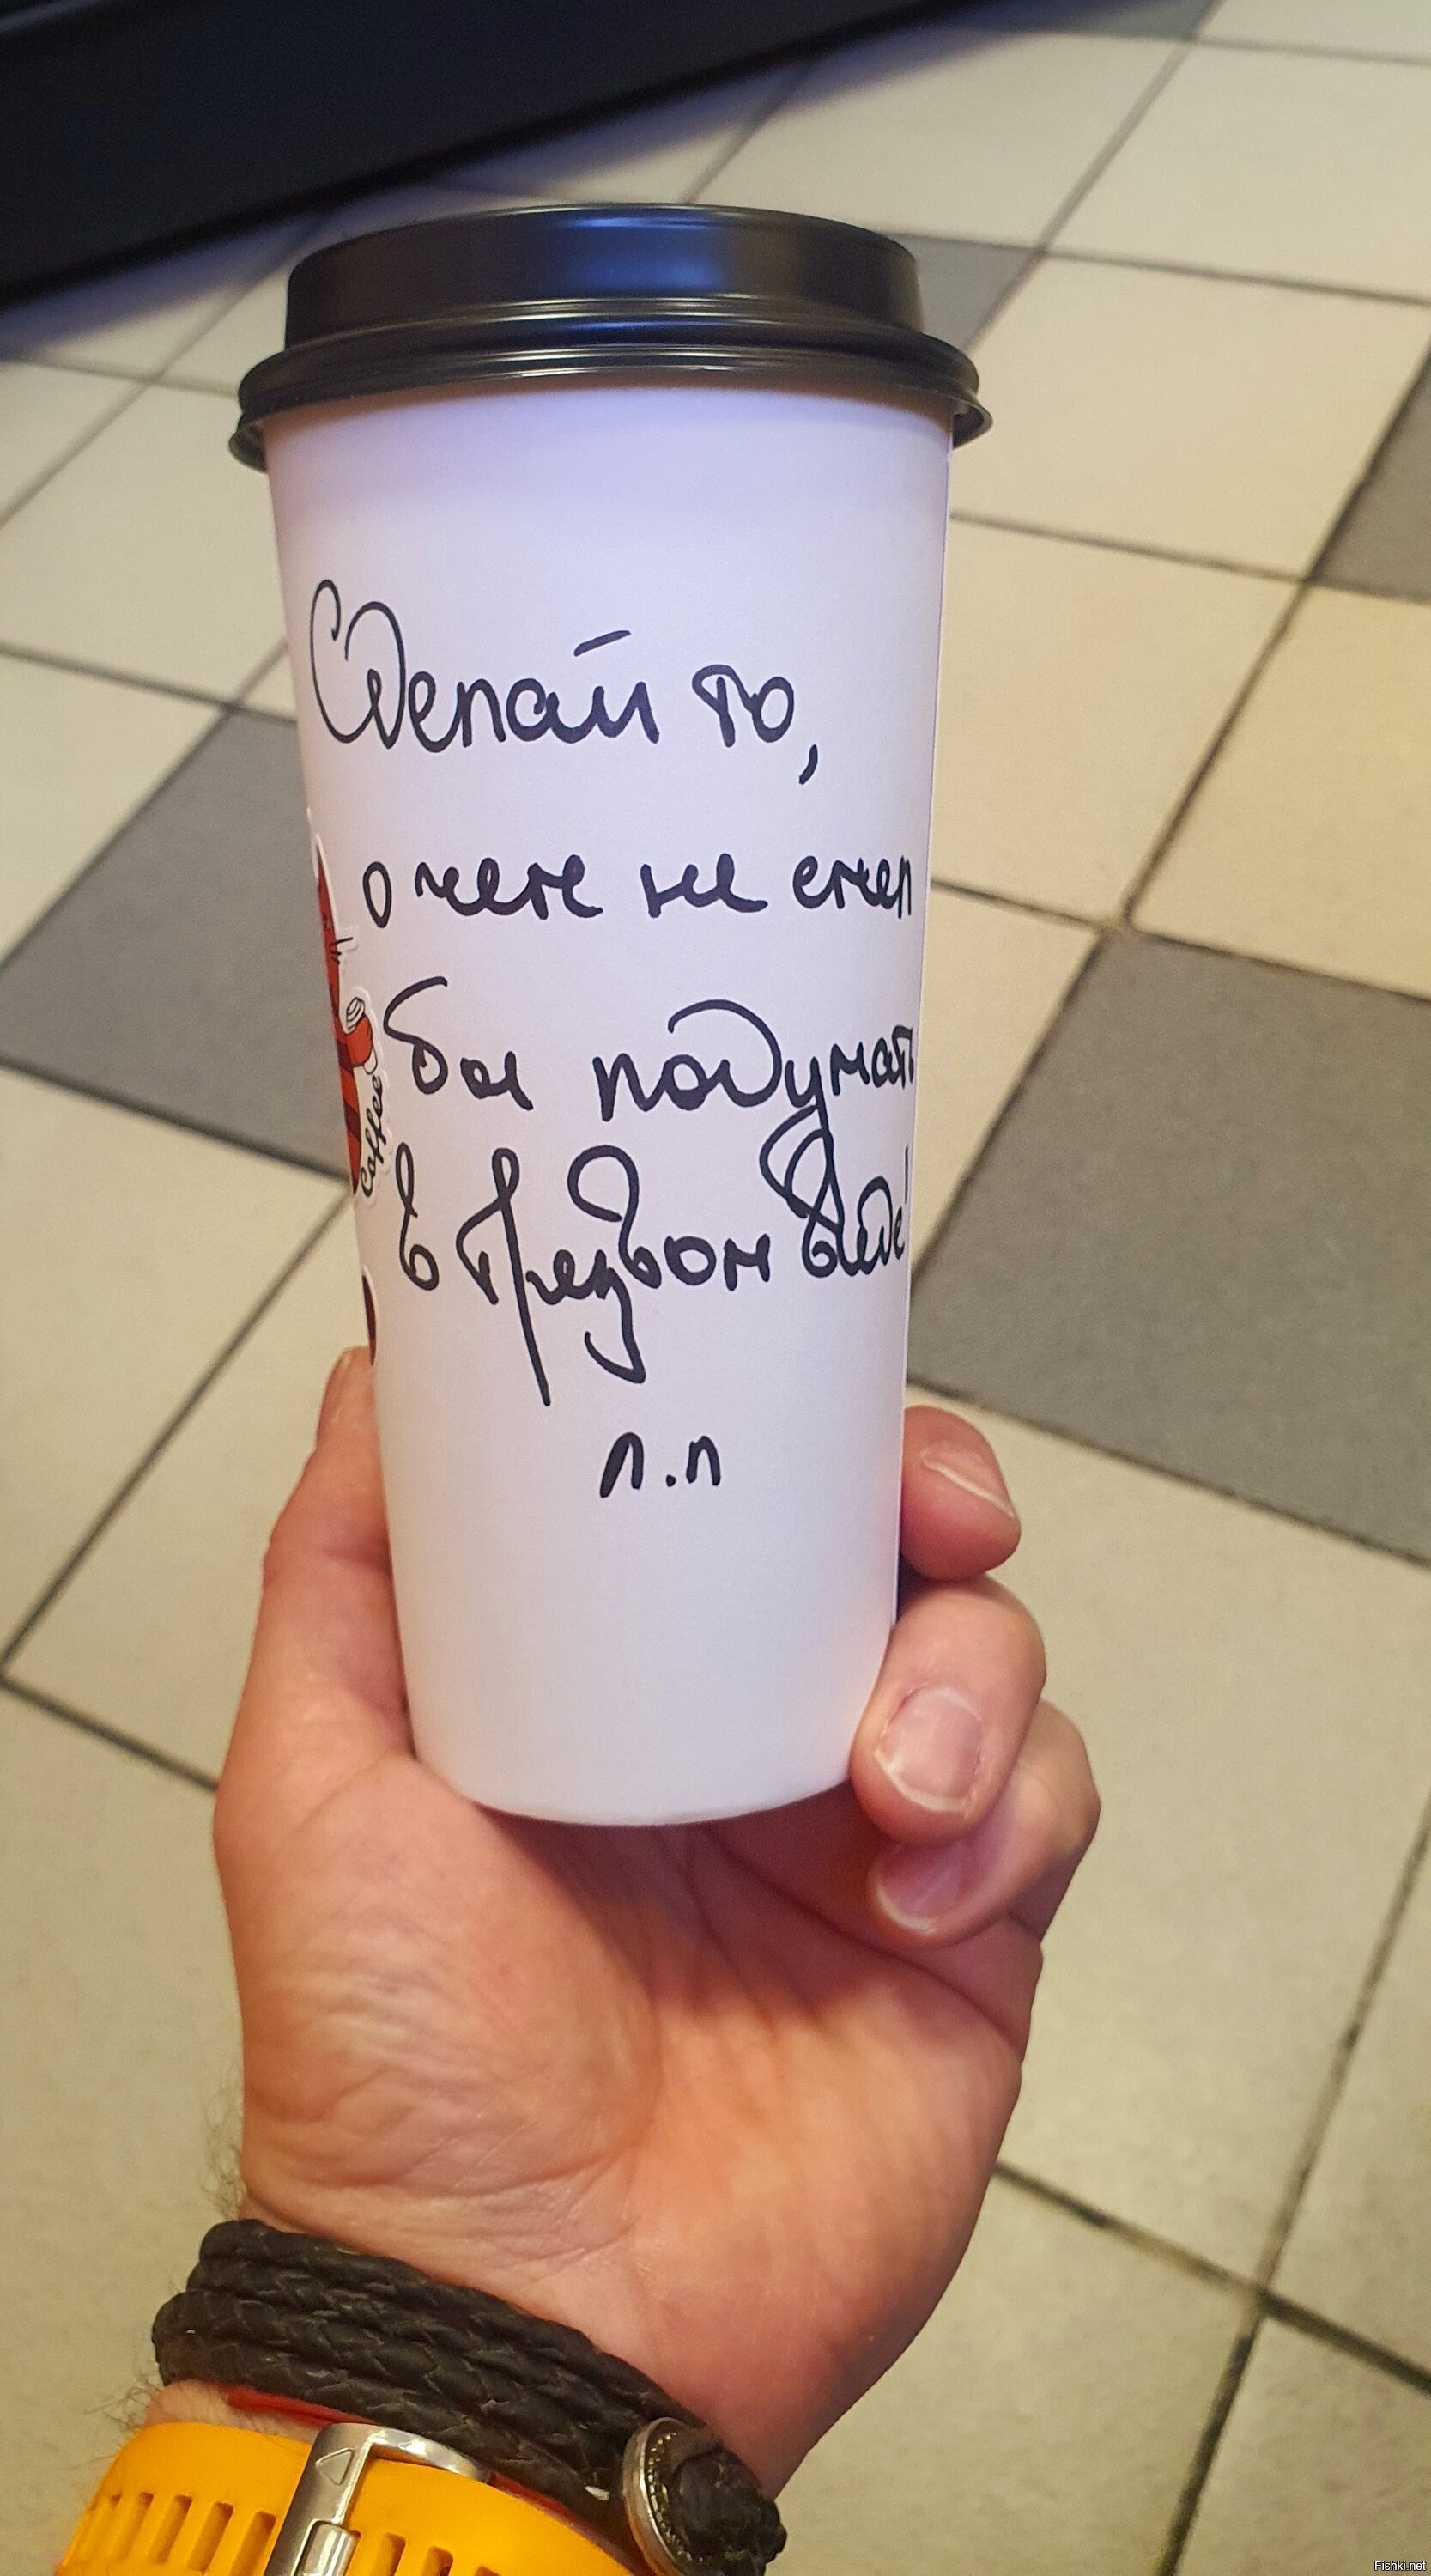 Сделай то,
о чем не смел
бы подумать
в трезвом виде!
Л.П
Coffee
Fishki.net